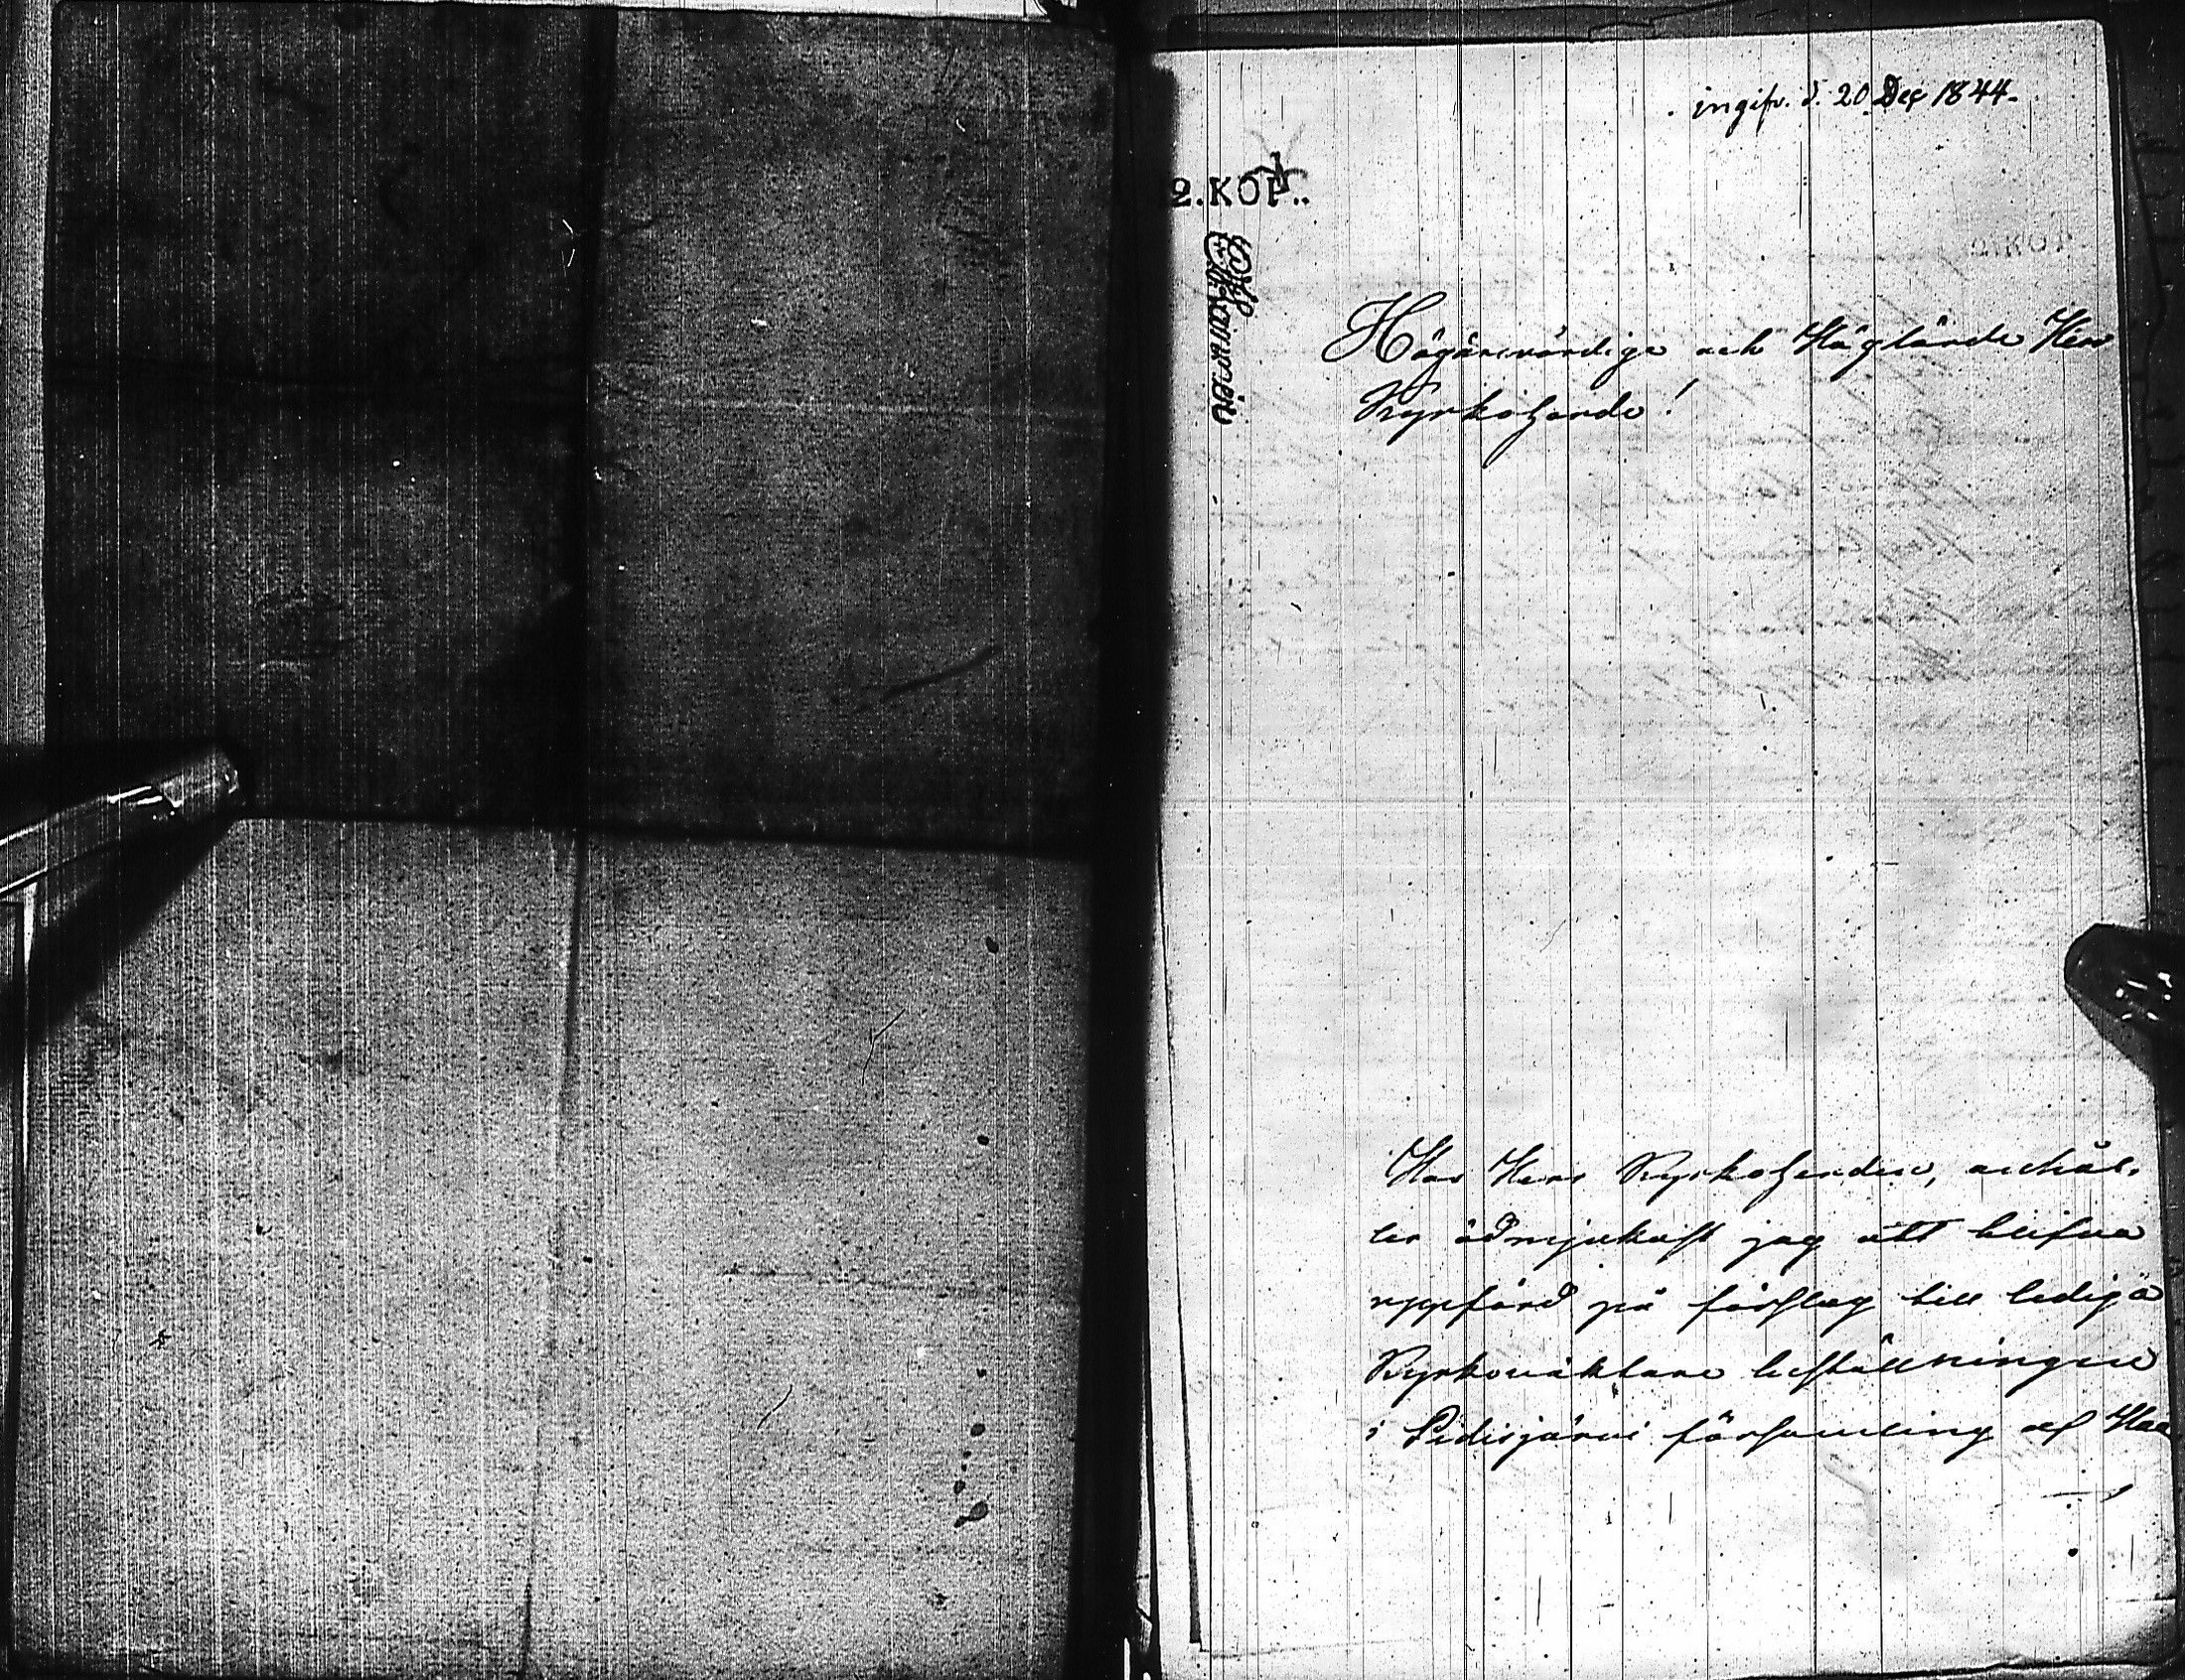 ingifv. d. 20 Dec 1844.
2.KOP.
Högärevördige och Höglärde Herr
Kyrkoherde!
Hos Herr Kyrkoherden, anhål-
ler ödmjukast jag att blifva
uppförd på förslag till lediga
Kyrkovaktare beställningen
i Pidisjärvi församling af Haa